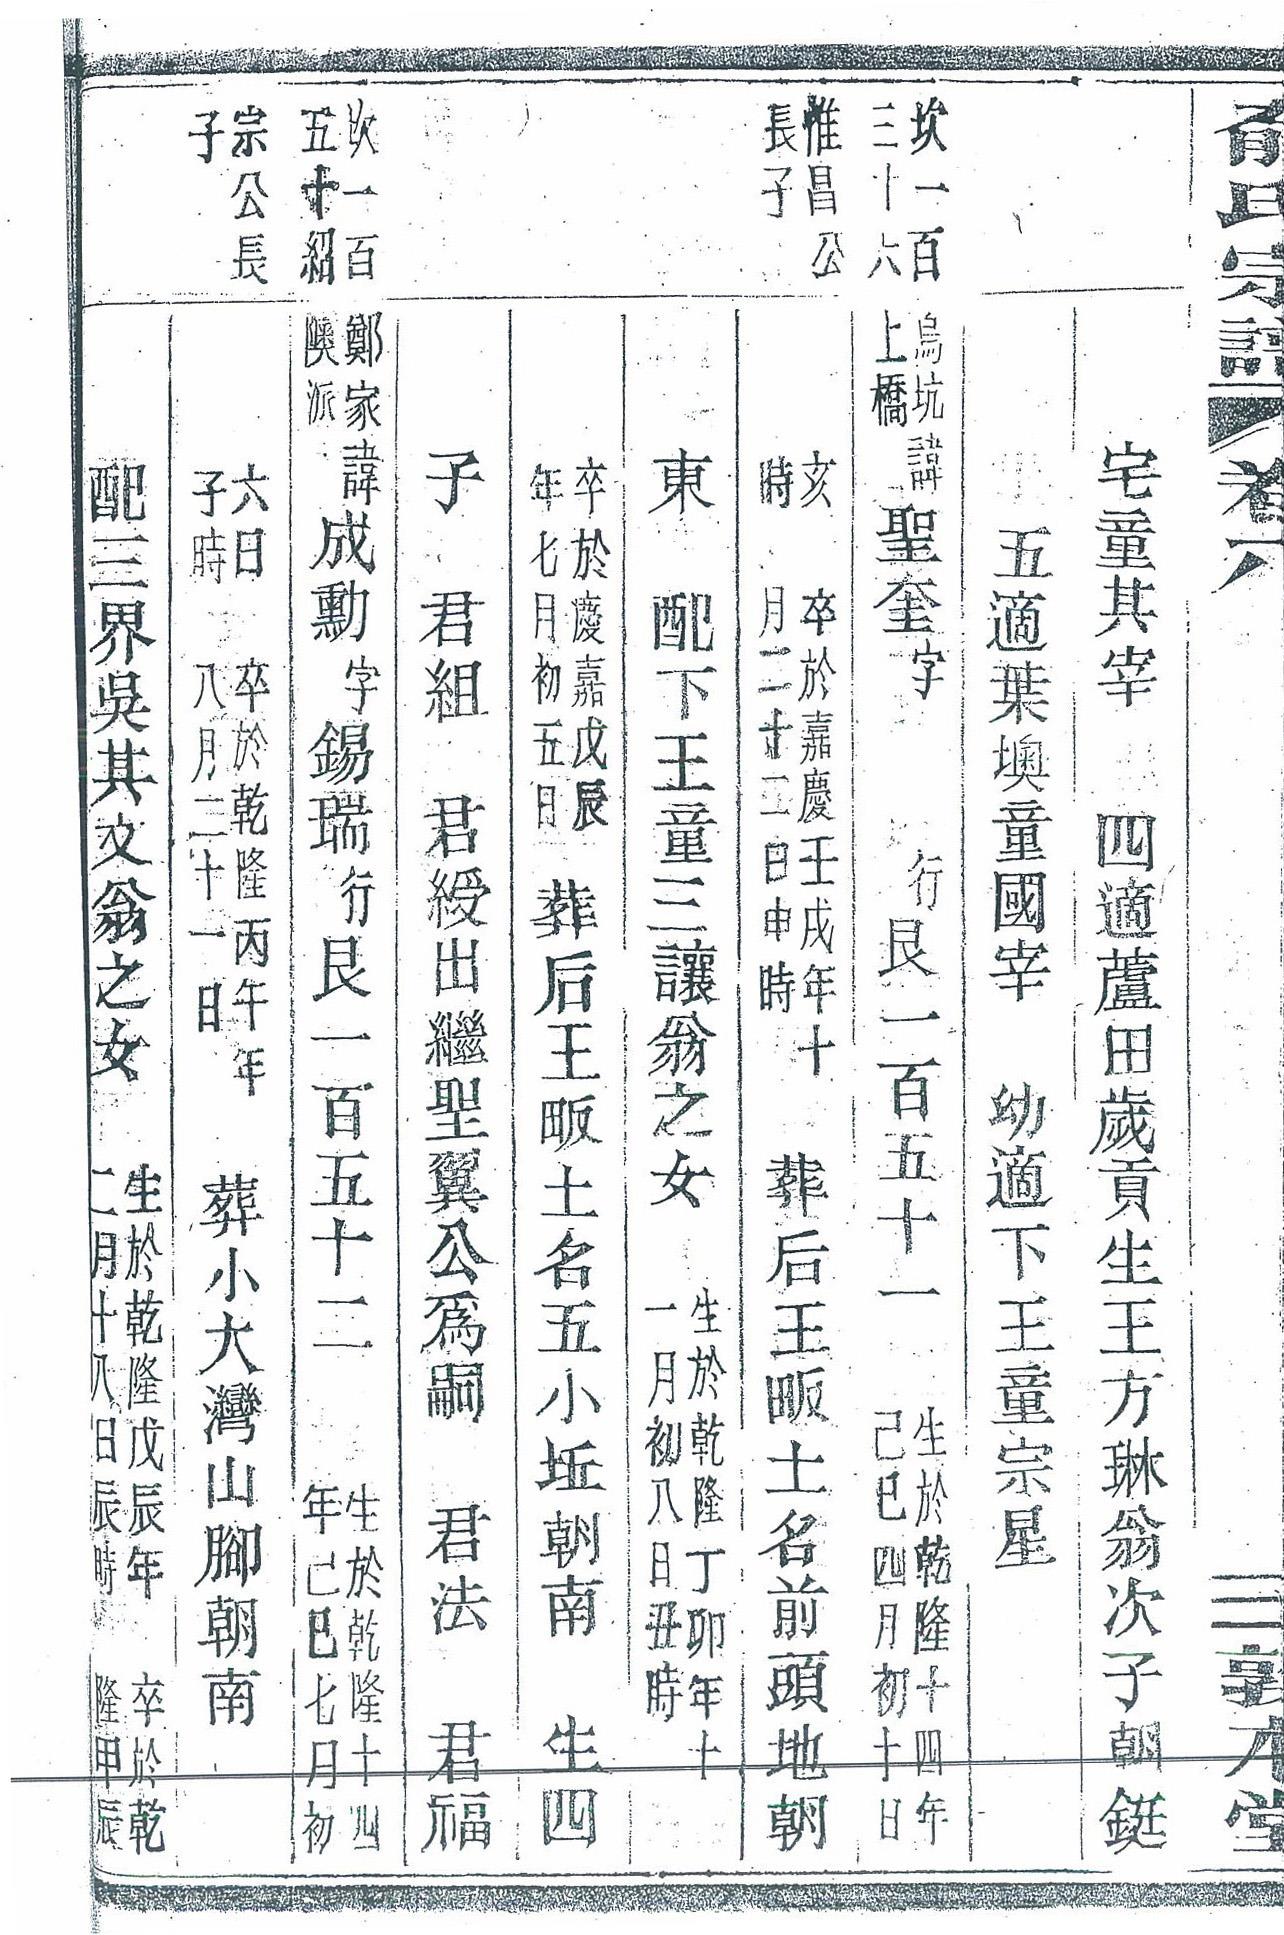 俞氏宗譜 卷六 三 敦本堂
宅童其宰 四適蘆田歲貢生王方琳翁次子朝鋌
五適葉墺童國宰 幼適下王童宗星
坎一百三十六
烏坑上橋 諱聖奎字 行艮一百五十一 生於乾隆十四年己巳四月初十日
惟昌公長子
亥時 卒於嘉慶壬戌年十月二十二日申時 葬后王畈土名前頭地朝
東 配下王童三讓翁之女 生於乾隆丁卯年十一月初八日丑時
卒於慶嘉戊辰年七日初五日 葬后王畈土名五小坵朝南 生四
子 君組 君綬出繼聖翼公為嗣 君法 君福
坎一百五十紹
鄭家隩派 諱成勳字錫瑞行艮一百五十二 生於乾隆十四年己巳七月初
宗公長子
六日子時 卒於乾隆丙午年八月二十一日 葬小大灣山腳朝南
配三界吳其文翁之女 生於乾隆戊辰年二月十八日辰時 卒於乾隆甲辰